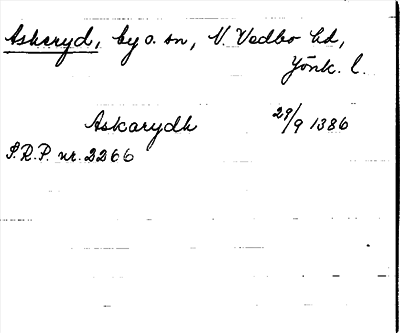 Askeryd, by o. sn, N. Vedbo hd,
Jönk. l.
Askarydh 29/9 1386
S.R.P. nr. 2266